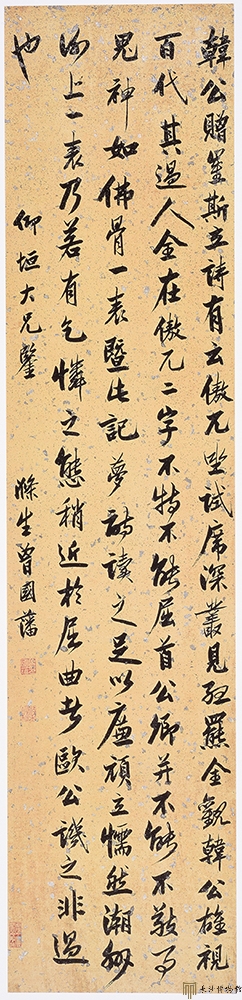 韓公贈崔斯立詩有云傲兀坐試席深叢見孤羆余觀韓公雄視
百代其過人全在傲兀二字不特不能屈首公卿并不能不敬
鬼神如佛骨一表暨此記夢詩讀之足以廉頑立懦然潮州
謝上一表乃若有乞憐之態稍近於屈曲者歐公譏之非過
也
仰垣大兄鑒 滌生曾國藩
長沙博物館